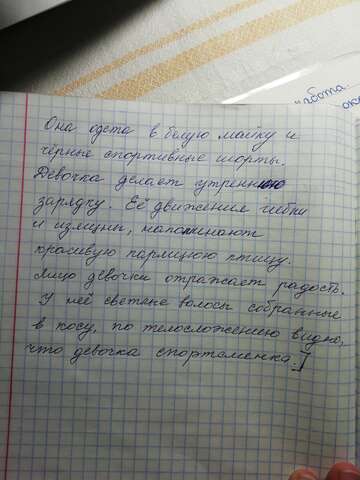 Она одета в белую майку и
чёрные спортивные шорты.
Девочка делает утреннюю
зарядку. Её движения гибки
и изящны, напоминают
красивую парящую птицу.
Лицо девочки отражает радость.
У неё светлые волосы собранные
в косу, по телосложению видно,
что девочка спортсменка.]